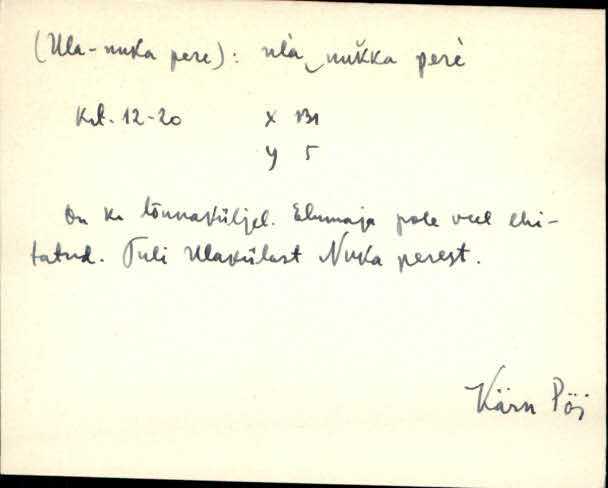 (Ula-nuka pere): ulà‿nuk̆ka perè
Krt. 12-20 X 131
Y 5
On ka lõunaküljel. Elumaja pole veel ehi-
tatud. Tuli Ulakülast Nuka perest.
Kärn Pöi